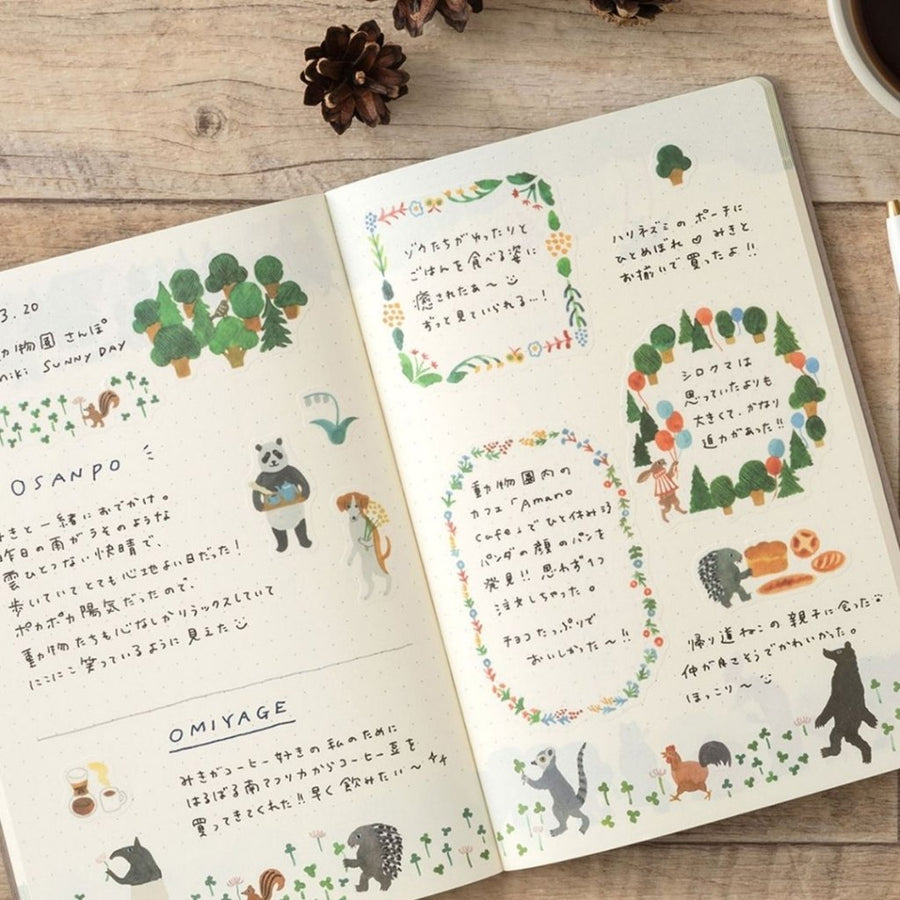 3.20
動物園 さんぽ
miki SUNNY DAY
OSANPO
みきと一緒におでかけ。
昨日の雨がうそのような
雲ひとつない快晴で、
歩いていてとても心地よい日だった!
ポカポカ陽気だったので、
動物たちも心なしかリラックスしていて
にこにこ笑っているように見えた
OMIYAGE
みきがコーヒー好きの私のために
はるばる南アフリカからコーヒー豆を
買ってきてくれた!!早く飲みたい〜
ゾウたちがゆったりと
ごはんを食べる姿に
癒されたあ〜
ずっと見ていられる…!
ハリネズミのポーチに
ひとめぼれ♡みきと
お揃いで買ったよ!!
シロクマは
思っていたよりも
大きくて、かなり
迫力があった!!
動物園内の
カフェ「Amano
cafe」でひと休み
パンダの顔のパンを
発見!!思わず1つ
注文しちゃった。
チョコたっぷりで
おいしかった〜!!
帰り道ねこの親子に会った
仲が良さそうでかわいかった。
ほっこり〜